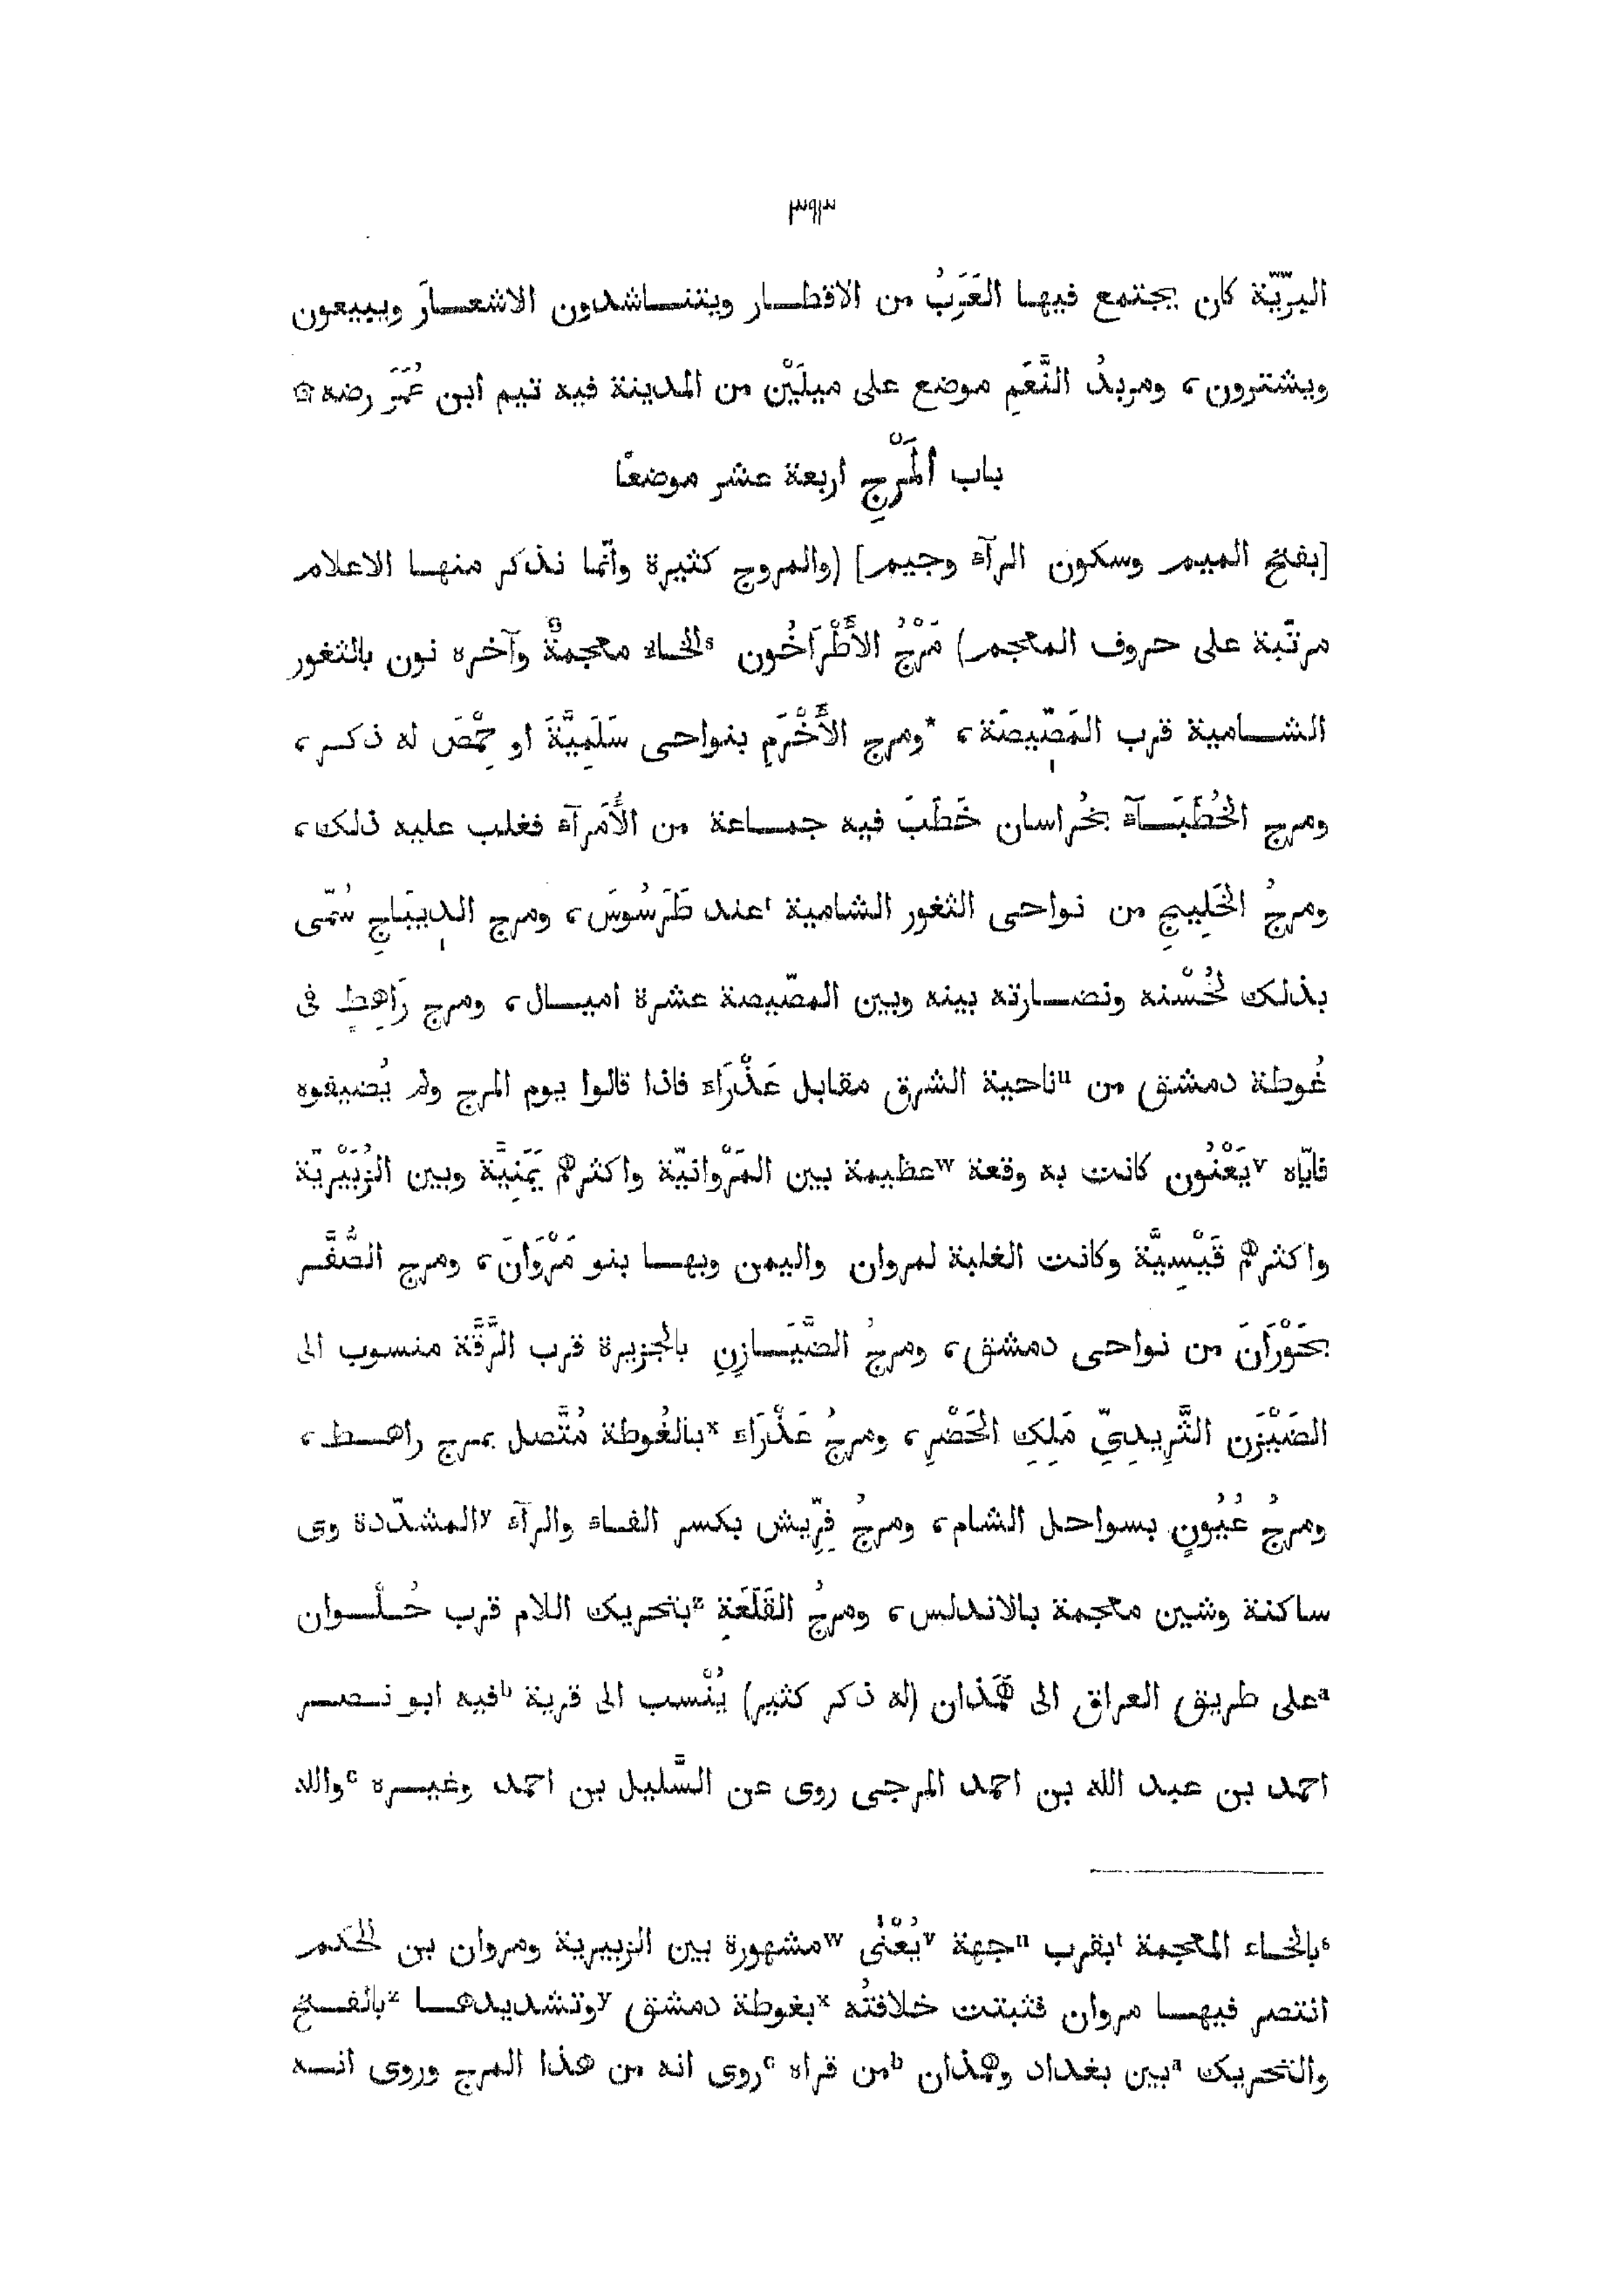 ٣٩٣
البرّيّة كان يجتمع فيها العَرَبُ من الاقطـار ويتنـاشدون الاشعـارَ ويبيعون
ويشترون، ومربدُ النَّعَمِ موضع على ميلَيْن من المدينة فيه تيم ابن عُمَرَ رضه ۞
باب اَلمَرْجِ اربعة عشر موضعًا
[بفتح الميم وسكون الرآء وجيم] (والمروج كثيرة وانّما نذكر منهـا الاعلام
مرتّبة على حروف المعجم) مَرْجُ الأَطْرَاخُون ⁸الخـاء معجمةٌ وآخره نون بالثغور
الشـامية قرب المَصِّيصَة، *ومرج الأَخْرَمِ بنواحى سَلَمِيَّةَ او حِمْصَ له ذكـر،
ومرج الخُطَبَـآء بخُراسان خَطَبَ فيه جمـاعة من الأُمَرآء فغلب عليه ذلك،
ومرجُ الخَلِيجِ من نواحى الثغور الشامية ᵗعند طَرَسُوسَ، ومرج الدِيبَاجِ سُمّى
بذلك لحُسْنه ونضـارته بينه وبين المصّيصة عشرة اميـال، ومرج رَاهِطٍ فى
غُوطة دمشق من ᵘناحية الشرق مقابل عَذْرَاء فاذا قالوا يوم المرج ولم يُضيفوه
فايّاه ᵛيَعْنُون كانت به وقعة ʷعظيمة بين المَرْوانيّة واكثرهم يَمَنِيَّة وبين الزُبَيْريّة
واكثرهم قَيْسِيَّة وكانت الغلبة لمروان واليمن وبهـا بنو مَرْوَانَ، ومرج الصُّفَّـر
بحَوْرَانَ من نواحى دمشق، ومرجُ الضَّيَـازِنِ بالجزيرة قرب الرَّقَّة منسوب الى
الضَيْزَن التَّزِيدِىّ مَلِكِ الحَضْرِ، ومرجُ عَذْرَاء ˣبالغُوطة مُتَّصل بمرج راهـط،
ومرجُ عُيُونٍ بسواحل الشام، ومرجُ فِرِّيش بكسر الفـاء والرآء ʸالمشدّدة وى
ساكنة وشين معجمة بالاندلس، ومرجُ القَلَعَةِ ᶻبتحريك اللام قرب حُـلْـوان
ᵃعلى طريق العراق الى هَمَذان (له ذكر كثير) يُنْسب الى قرية ᵇفيه ابو نـصـر
احمد بن عبد الله بن احمد المرجى روى عن السَّليل بن احمد وغيـره ᶜوالله
ˢبالخـاء المعجمة ᵗبقرب ᵘجهة ᵛيُعْنَى ʷمشهورة بين الزبيرية ومروان بن الحكم
انتصر فيهـا مروان فثبتت خلافتُه ˣبغوطة دمشق ʸوتشديدهـا ᶻبالفـتح
والتحريك ᵃبين بغداد وهمذان ᵇمن قراه ᶜروى انه من هذا المرج وروى انـه